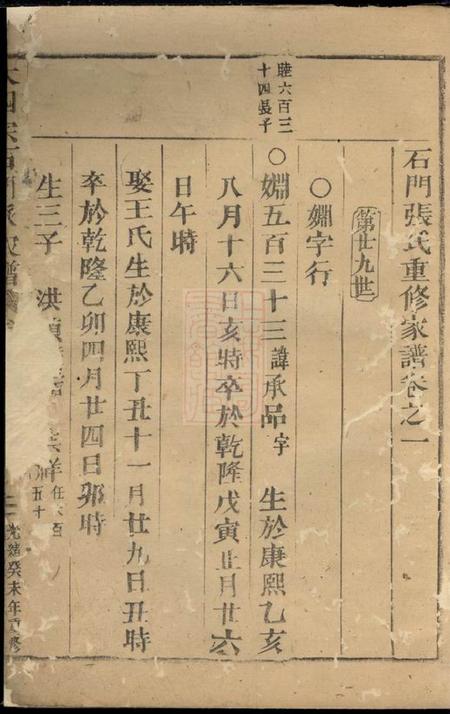 石門張氏重修家譜卷之一
第廿九世
○婣字行
睦六百三
十四長子
○婣五百三十三諱承品字 生於康熙乙亥
八月十六日亥時卒於乾隆戊寅七月廿六
日午時
娶王氏生於康熙丁丑十一月廿九日丑時
卒於乾隆乙卯四月廿四日卯時
生三子 洪
祥
任 百
五十
光緒癸未年重修